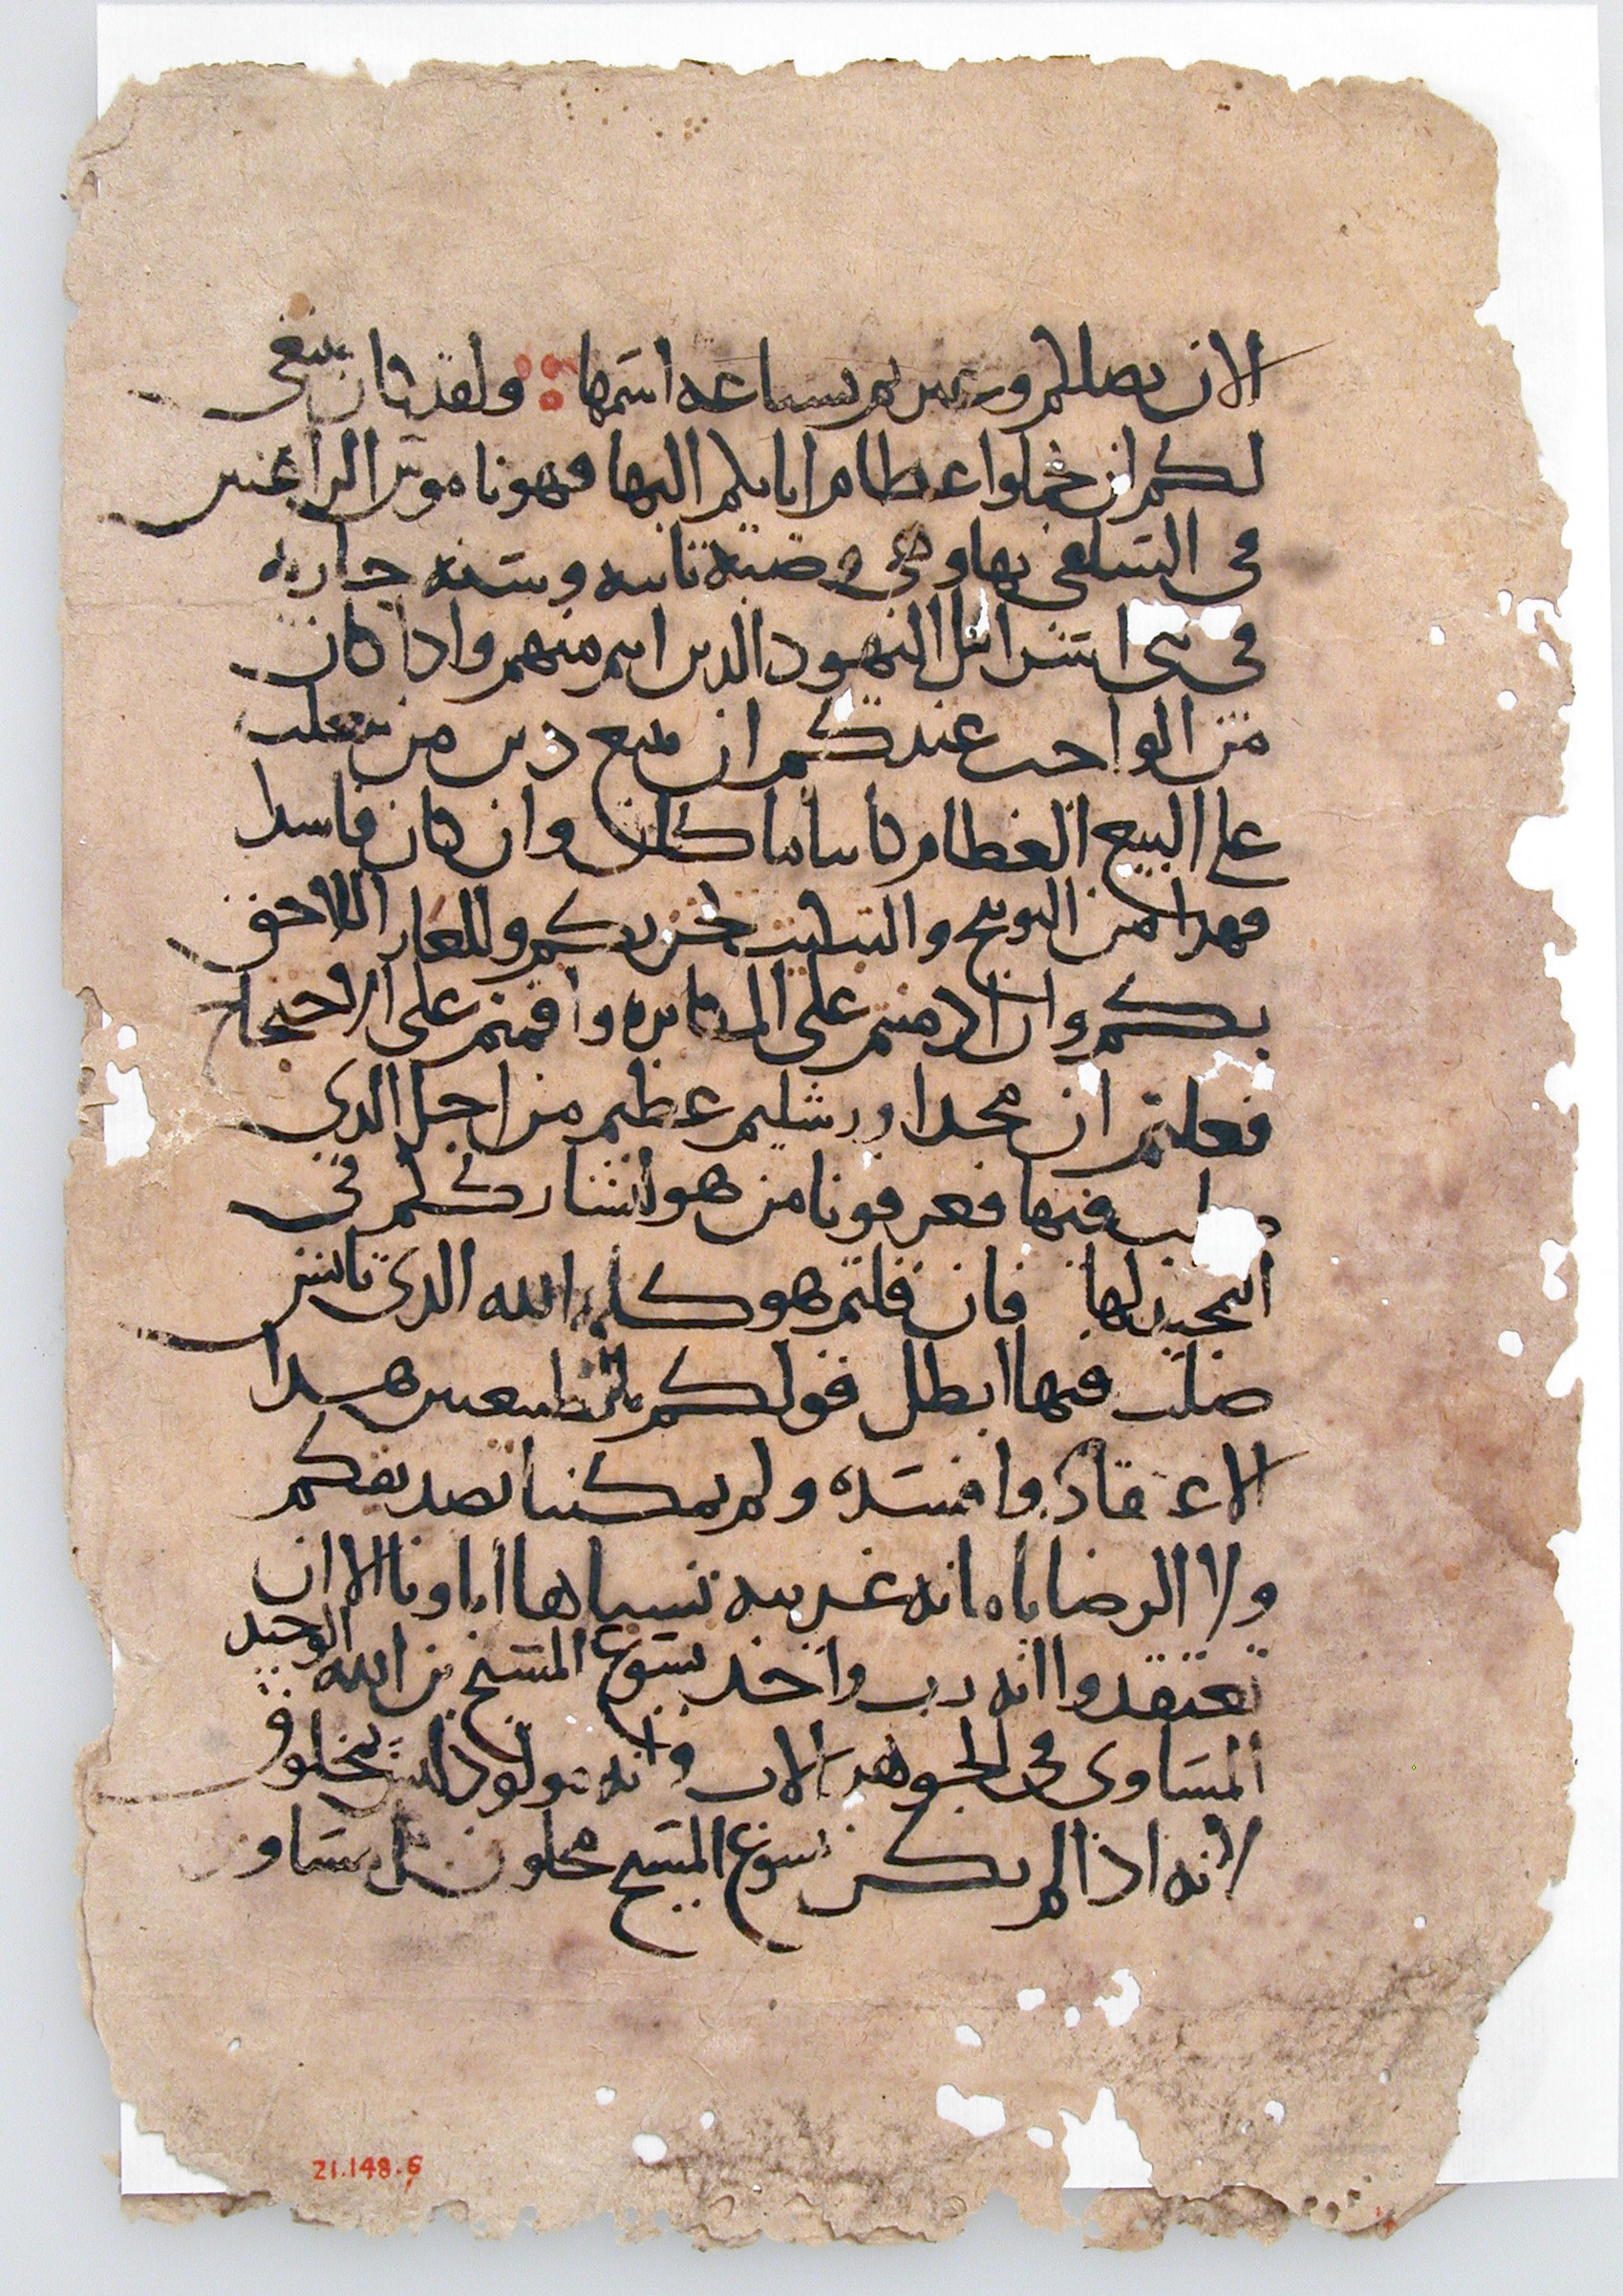 الان بضلالكم وبتميزكم بساعه اسمها ولقد كان ينبغى
لكم ان تحملوا عظام ابايكم اليها فهوذا موتر الراغبين
فى التباهى بها وهى وصيه ثانيه وسنه جاريه
فى بنى اسرائيل اليهود الذين انتم منهم واذا كان
من الواجب عندكم ان يتبع دين من تغلب
على البيع العظام كاينا ما كان وان كان فاسدا
فهذا من التوبيخ والتبكيت لخزيكم وللعار اللاحق
بكم وان ادمنتم على المكابره واقمتم على الاحتجاج
فقلتم ان مجد اورشليم عظيم من اجل الذى
صلب فيها فعرفونا من هو لنشارككم فى
التمجيد لها فان قلتم هو كلمة الله الذى تانس
صلب فيها ابطل قولكم بالطبيعتين هذا
الاعتقاد وافسده ولم يمكننا تصديقكم
ولا الرضا بامانه غريبه نسيها اباونا الا ان
تعتقدوا انه رب واحد يسوع المسيح بن الله الوحيد
المساوى فى الجوهر للاب وانه مولود ليس بمخلوق
لانه اذا لم يكن يسوع المسيح مخلوق بل مساو
21.148.6